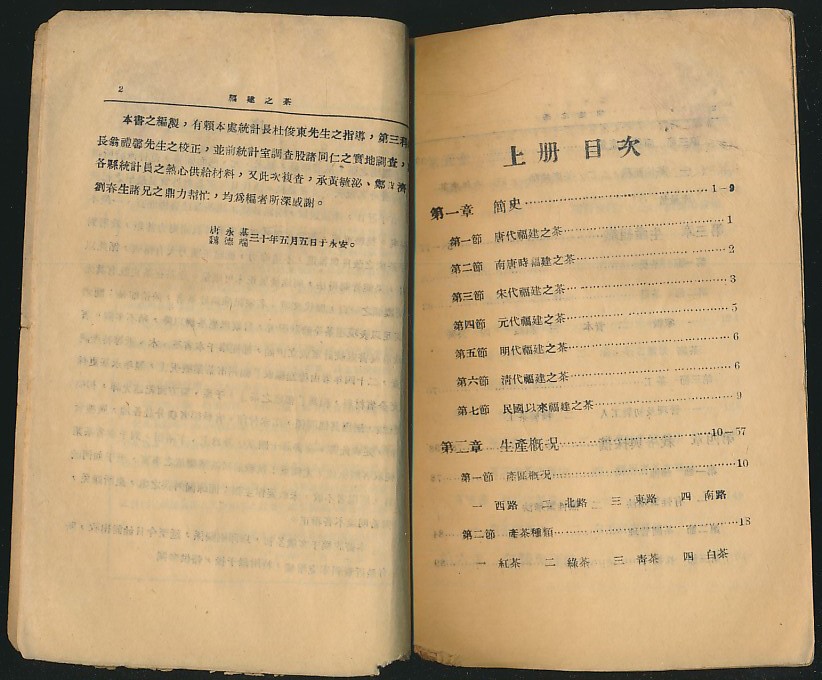 2
福建之茶
本書之編製，有賴本處統計長杜俊東先生之指導，第三科
長翁禮馨先生之校正，並前統計室調查股諸同仁之實地調查，
各縣統計員之熱心供給材料，又此次複查，承黃毓泌、鄭 濟
劉春生諸兄之鼎力幫忙，均爲編者所深感謝。
唐永基
魏德端
三十年五月五日于永安。
上册目次
第一章 簡史………1－9
第一節 唐代福建之茶………1
第二節 南唐時福建之茶………2
第三節 宋代福建之茶………3
第四節 元代福建之茶………5
第五節 明代福建之茶………6
第六節 清代福建之茶………6
第七節 民國以來福建之茶………9
第二章 生產概況………10－57
第一節 產區概況………10
一 西路 二 北路 三 東路 四 南路
第二節 產茶種類………18
一 紅茶 二 綠茶 三 青茶 四 白茶